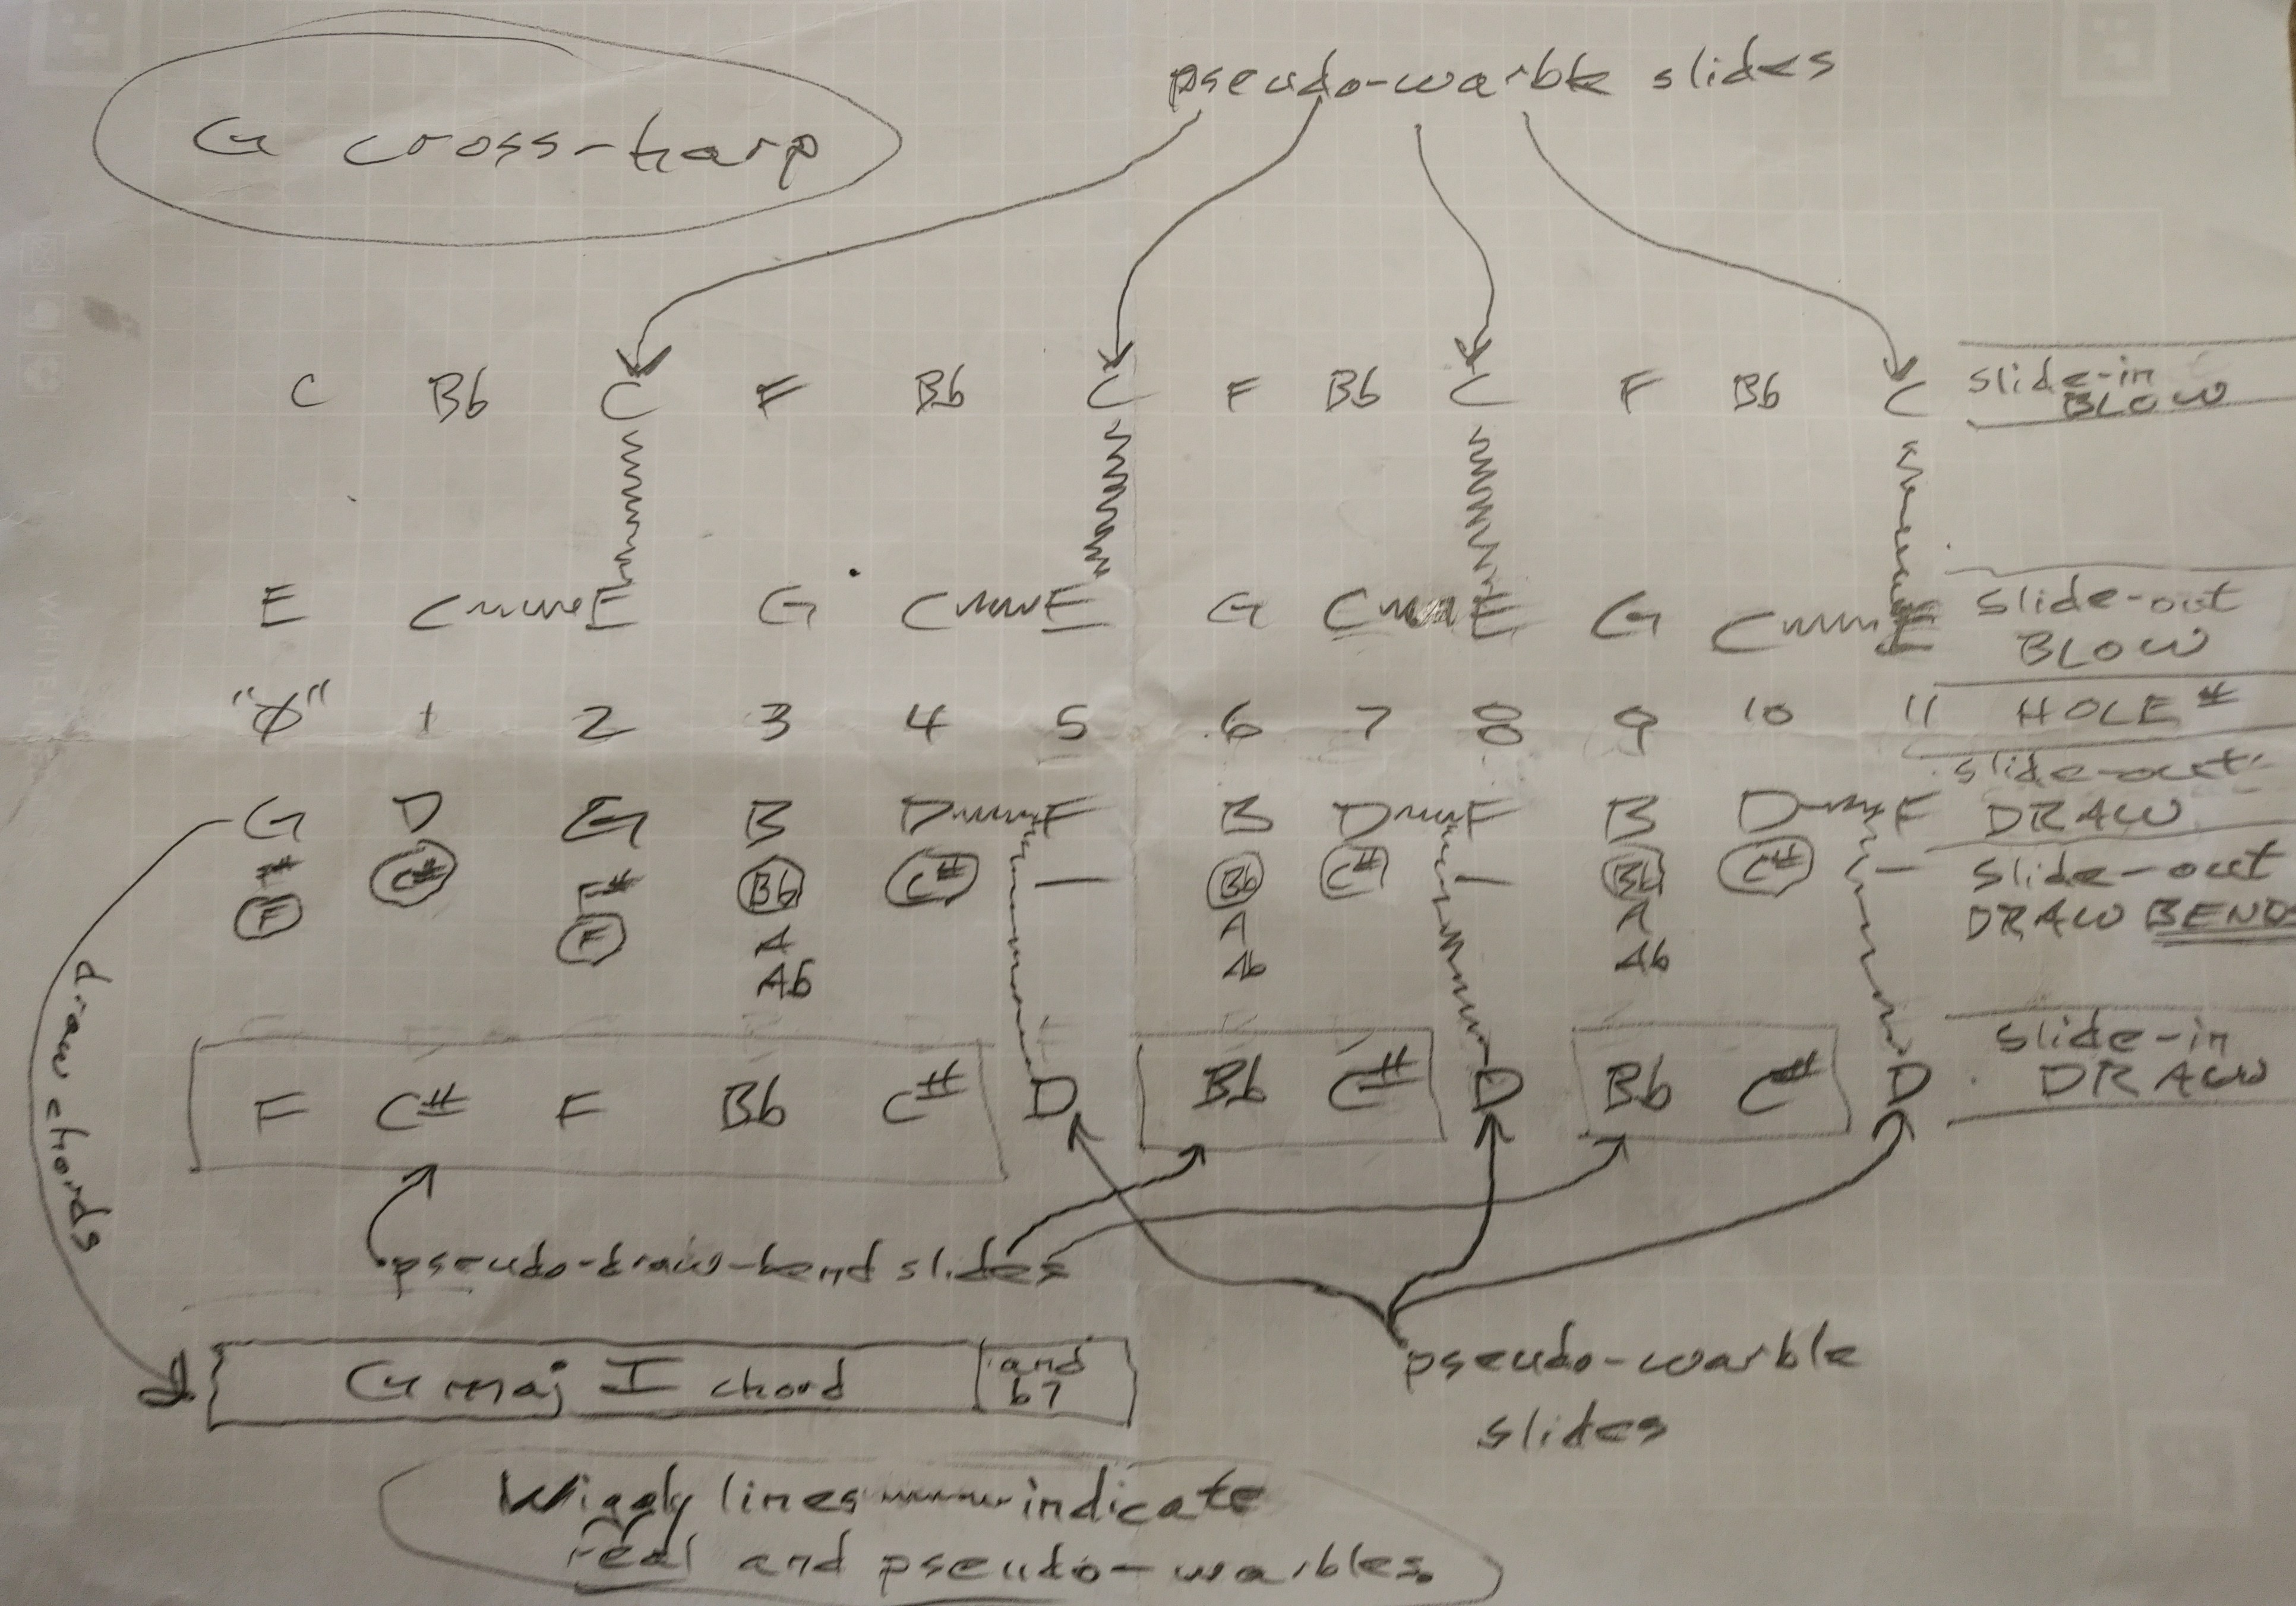 pseudo-warble slides
G cross-harp
C Bb C F Bb C F Bb C F Bb C slide-in
BLOW
E C E G C E G C E G C E slide-out
BLOW
"Ø" 1 2 3 4 5 6 7 8 9 10 11 HOLE #
G D G B D F B D F B D F slide-out
DRAW
F# C# F# Bb C# — Bb C# — Bb C# — slide-out
F F A A A DRAW BENDS
Ab Ab Ab
F C# F Bb C# D Bb C# D Bb C# D slide-in
DRAW
draw chords
pseudo-draw-bend slides
G maj I chord and
b7
pseudo-warble
slides
Wiggly lines indicate
real and pseudo-warbles.